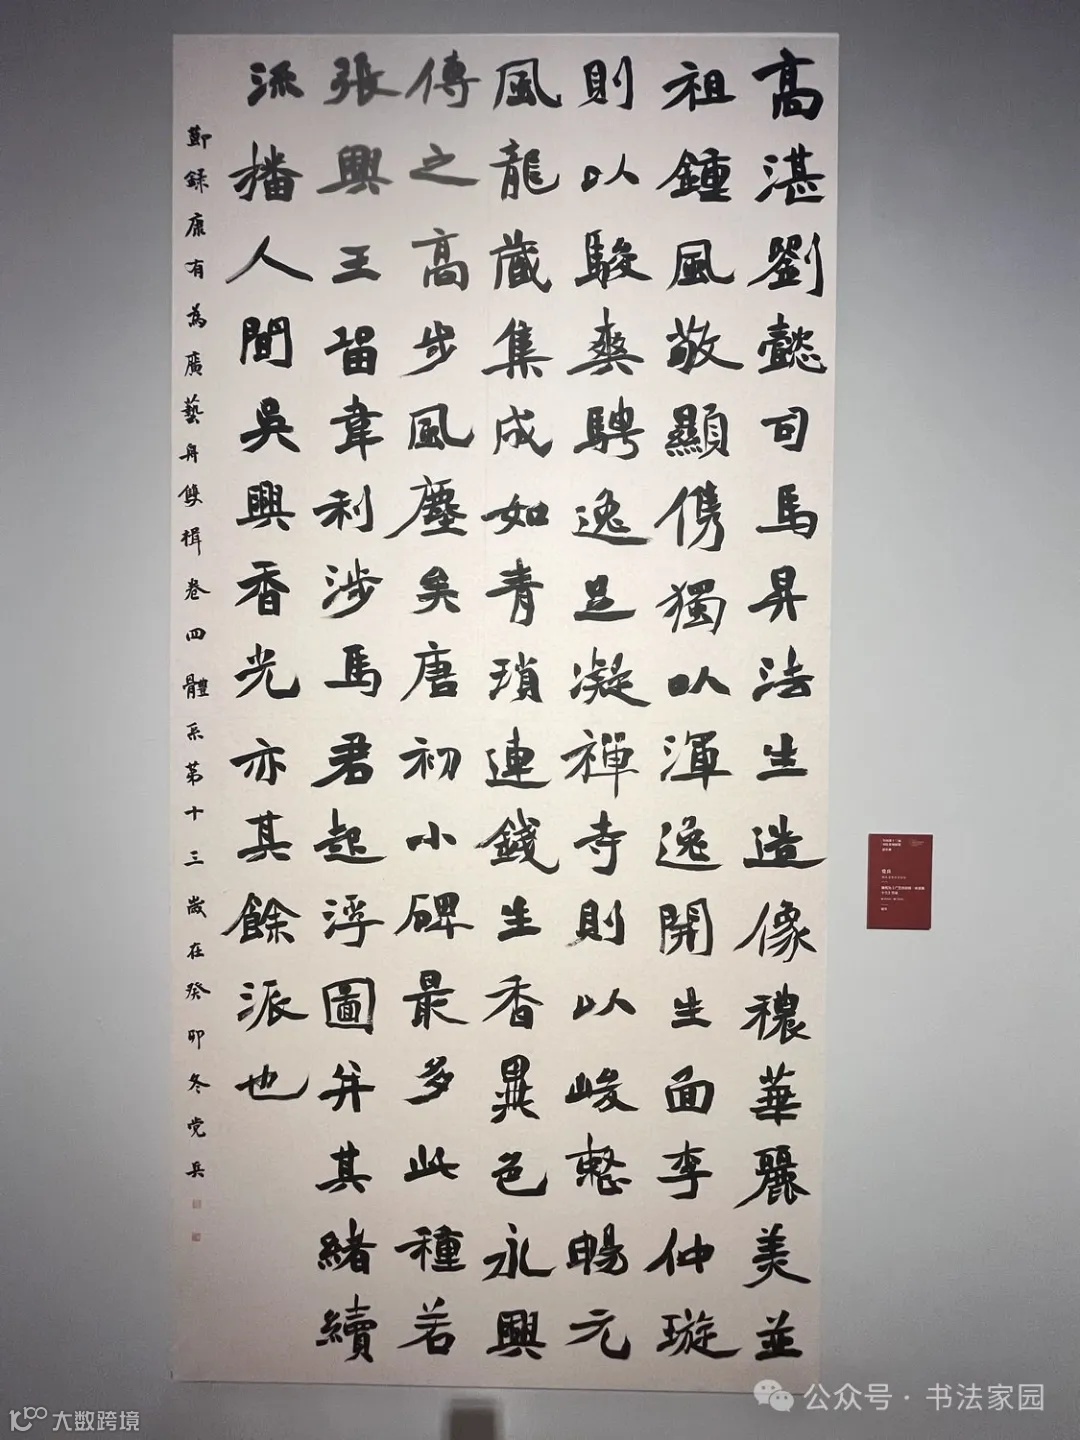 高湛劉懿司馬昇法生造像穠華麗美並
祖鍾風敬顯儁獨以渾逸開生面李仲璇
則以駿爽騁逸足凝禪寺則以峻整暢元
風龍藏集成如青瑣連錢生香異色永興
傳之高步風塵矣唐初小碑最多此種若
張興王留韋利涉馬君起浮圖并其緒續
派播人間吳興香光亦其餘派也
節錄康有為廣藝舟雙楫卷四體系第十三歲在癸卯冬党兵
公众号·书法家园
大数跨境